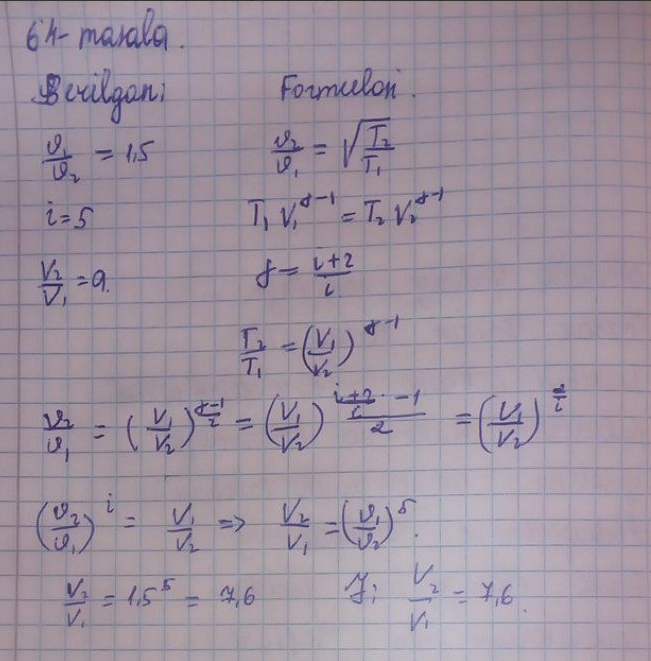 64-masala.
Berilgan: Formulasi.
ϑ₁/ϑ₂ = 1,5 ϑ₂/ϑ₁ = √(T₂/T₁)
i=5 T₁V₁^(γ-1) = T₂V₂^(γ-1)
V₂/V₁ = ? γ = (i+2)/i
T₂/T₁ = (V₁/V₂)^(γ-1)
ϑ₂/ϑ₁ = (V₁/V₂)^((γ-1)/2) = (V₁/V₂)^(((i+2)/i - 1)/2) = (V₁/V₂)^(1/i)
(ϑ₂/ϑ₁)^i = V₁/V₂ => V₂/V₁ = (ϑ₁/ϑ₂)^5.
V₂/V₁ = 1,5^5 = 7,6 J: V₂/V₁ = 7,6.